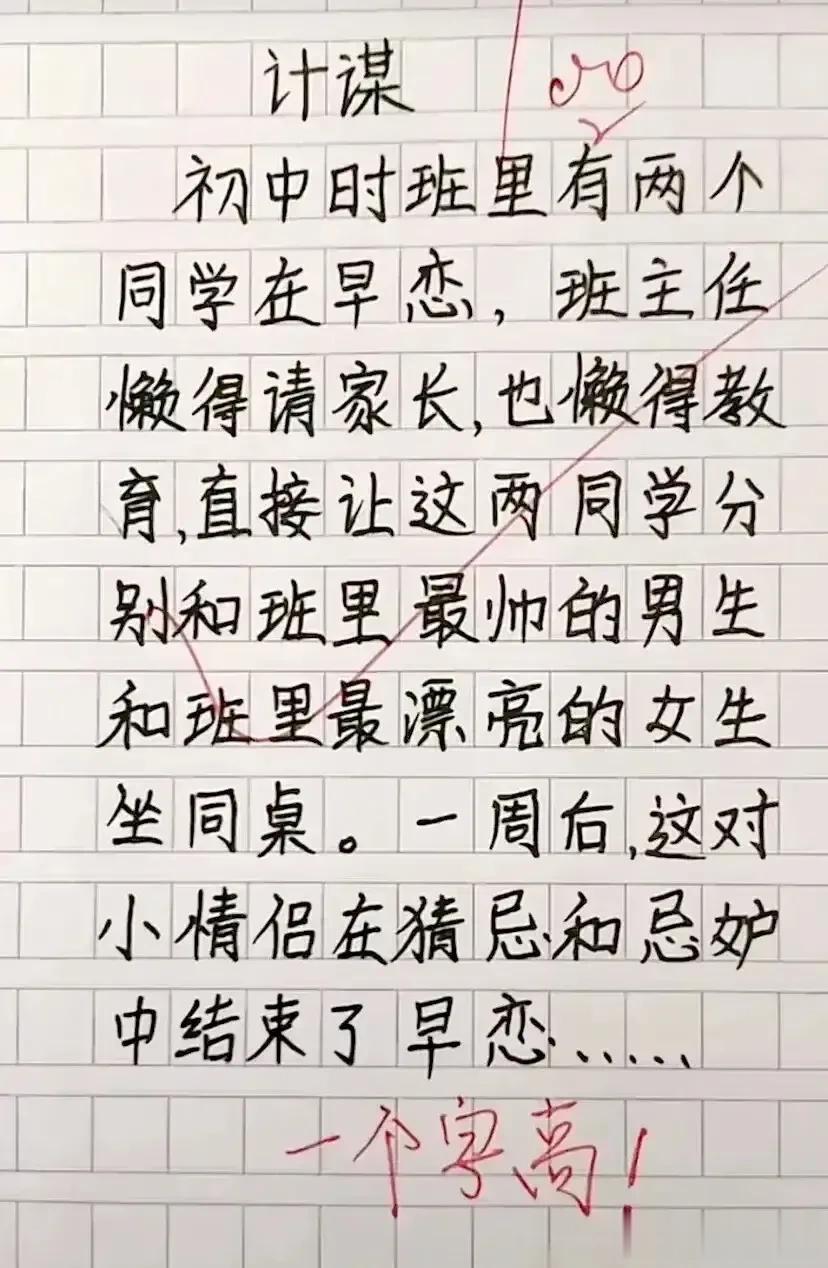 计谋
初中时班里有两个
同学在早恋，班主任
懒得请家长，也懒得教
育，直接让这两同学分
别和班里最帅的男生
和班里最漂亮的女生
坐同桌。一周后，这对
小情侣在猜忌和忌妒
中结束了早恋……
一个字，高！